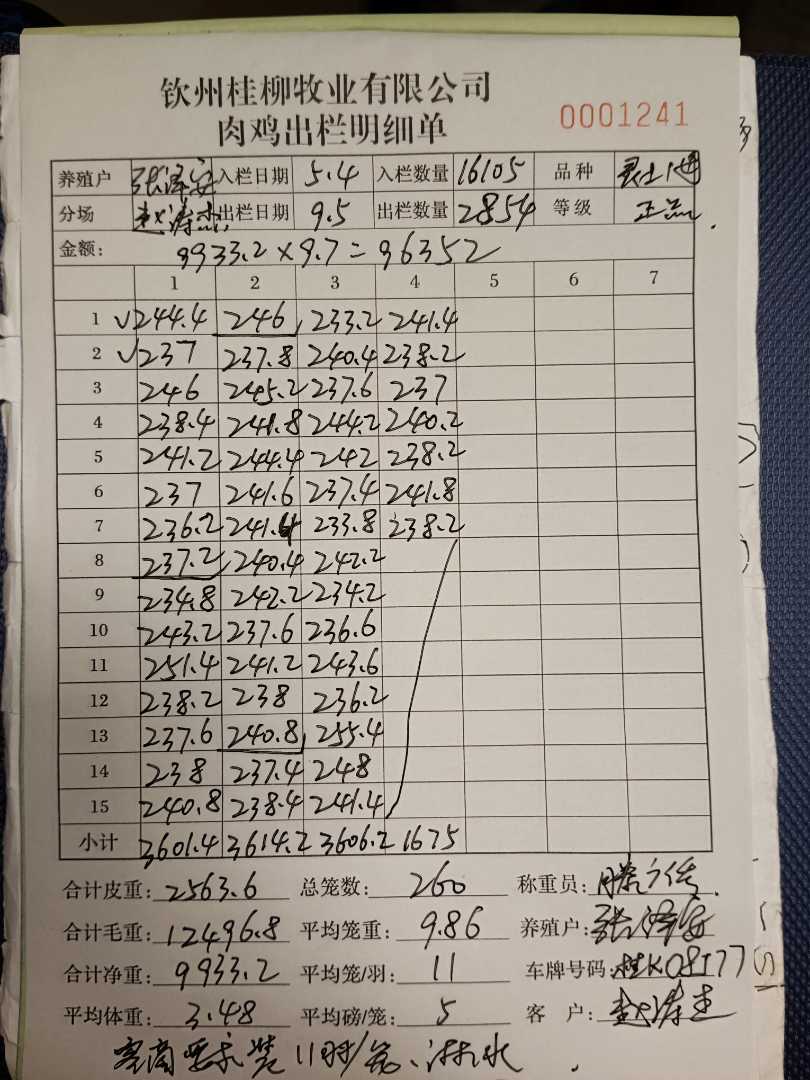 钦州桂柳牧业有限公司
肉鸡出栏明细单
0001241
养殖户 张泽安 入栏日期 5.4 入栏数量 16105 品种
分场 出栏日期 9.5 出栏数量 2854 等级 正品
金额: 9933.2×9.7=96352
1 2 3 4 5 6 7
1 √244.4 246 233.2 241.4
2 √237 237.8 240.4 238.2
3 246 245.2 237.6 237
4 238.4 241.8 244.2 240.2
5 241.2 244.4 242 238.2
6 237 241.6 237.4 241.8
7 236.2 241.4 233.8 238.2
8 237.2 240.4 242.2
9 234.8 242.2 234.2
10 243.2 237.6 236.6
11 251.4 241.2 243.6
12 238.2 238 236.2
13 237.6 240.8 255.4
14 238 237.4 248
15 240.8 238.4 241.4
小计 3601.4 3614.2 3606.2 1675
合计皮重: 2563.6 总笼数: 260 称重员:
合计毛重: 12496.8 平均笼重: 9.86 养殖户: 张泽安
合计净重: 9933.2 平均笼/羽: 11 车牌号码: 桂K08J77
平均体重: 3.48 平均磅/笼: 5 客户:
客商要求装11羽/笼、淋水.